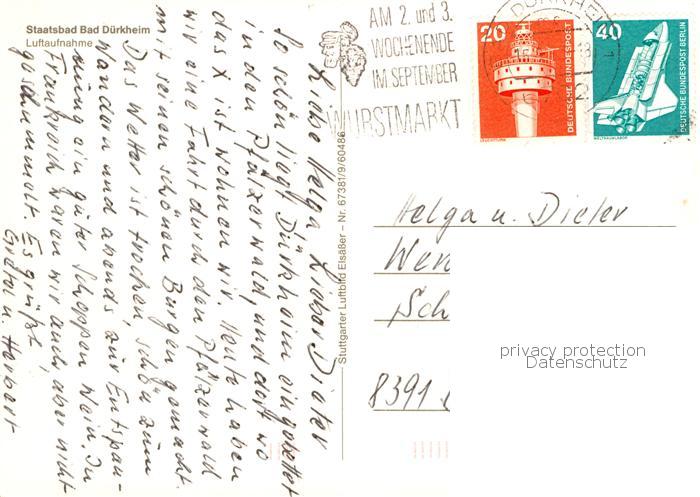 Staatsbad Bad Dürkheim
Luftaufnahme
AM 2. und 3.
WOCHENENDE
IM SEPTEMBER
WURSTMARKT
DÜRKHEI
20
DEUTSCHE BUNDESPOST
LEUCHTTURM
40
DEUTSCHE BUNDESPOST BERLIN
WELTRAUMLABOR
Liebe Helga Lieber Dieter
So schön liegt Dürkheim eingebettet
in den Pfälzerwald, und dort wo
das X ist wohnen wir. Heute haben
wir eine Fahrt durch den Pfälzerwald
mit seinen schönen Burgen gemacht.
Das Wetter ist trocken, schön zum
Wandern und abends, zur Entspan-
nung ein guter Schoppen Wein. In
Frankreich waren wir auch, aber nicht
geschummelt. Es grüßt
Gretel u. Herbert
Stuttgarter Luftbild Elsäßer – Nr. 67381/9/60486
Helga u. Dieter
Wer
Sch
8391
privacy protection
Datenschutz